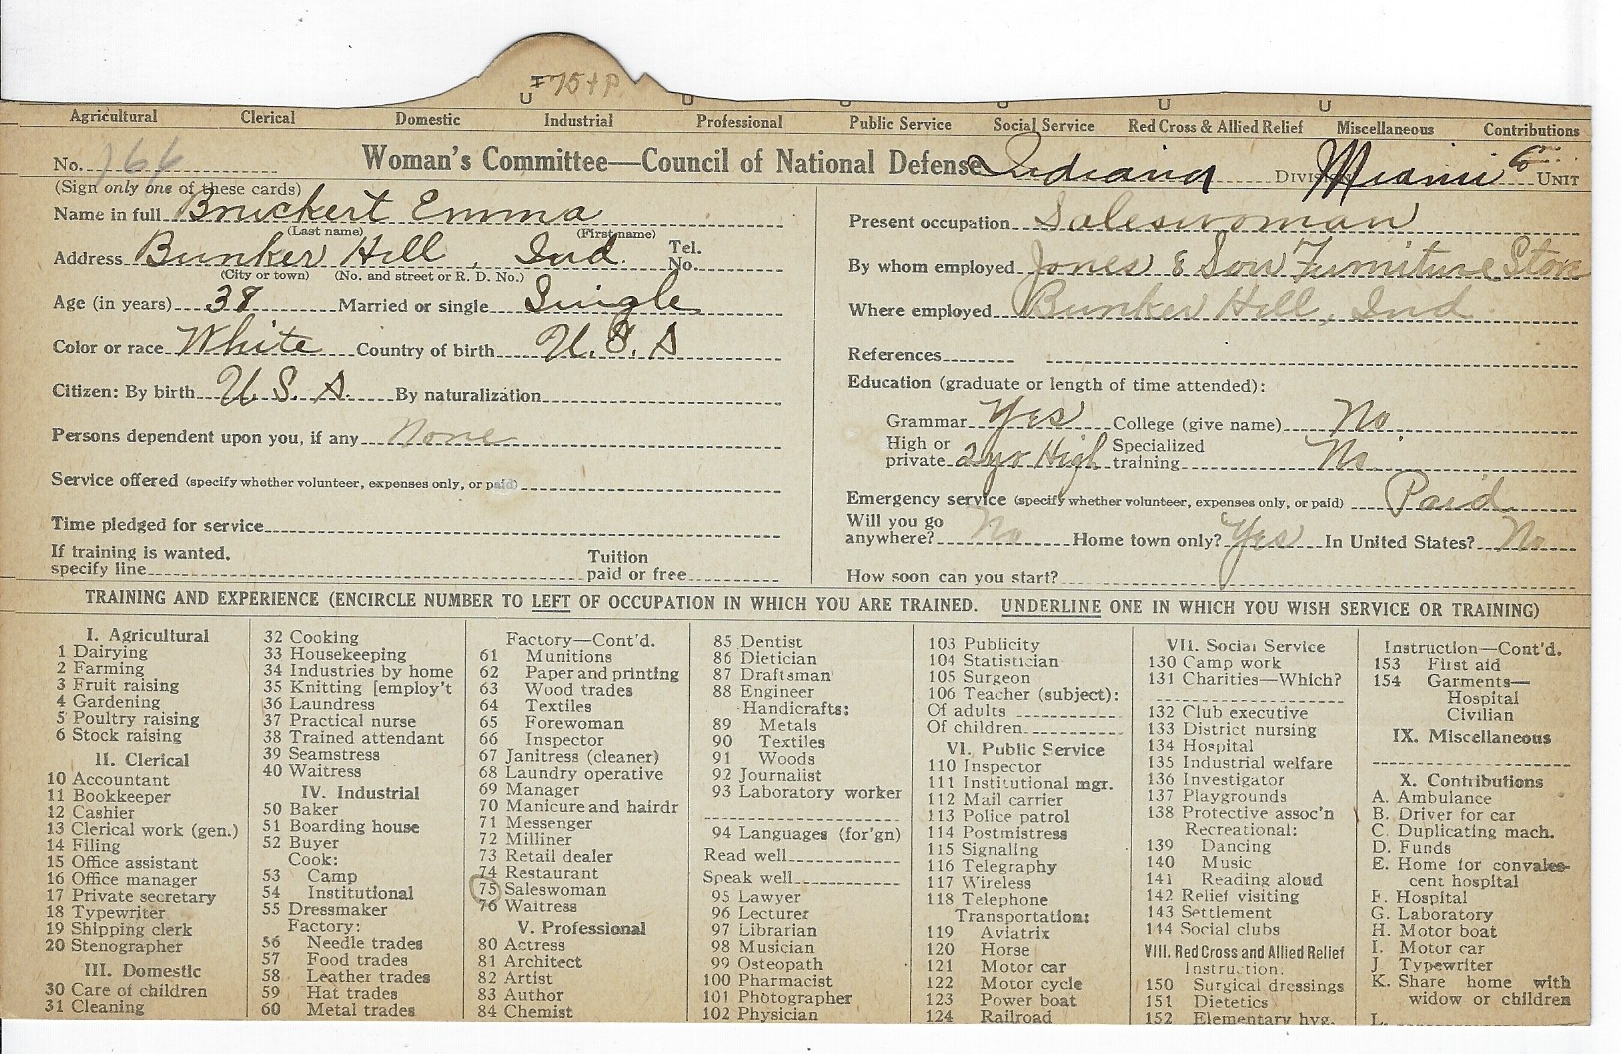 75 + P.
Agricultural Clerical Domestic Industrial Professional Public Service Social Service Red Cross & Allied Relief Miscellaneous Contributions
No. 166 Woman's Committee—Council of National Defense Indiana Division Miami Co Unit
(Sign only one of these cards)
Name in full Bruckert Emma
(Last name) (First name)
Address Bunker Hill, Ind. Tel. No.
(City or town) (No. and street or R. D. No.)
Age (in years) 38 Married or single Single
Color or race White Country of birth U.S.A
Citizen: By birth U.S.A. By naturalization
Persons dependent upon you, if any None
Service offered (specify whether volunteer, expenses only, or paid)
Time pledged for service
If training is wanted, specify line Tuition paid or free
Present occupation Saleswoman
By whom employed Jones & Son Furniture Store
Where employed Bunker Hill, Ind.
References
Education (graduate or length of time attended):
Grammar Yes College (give name) No
High or private 2 yr High Specialized training No
Emergency service (specify whether volunteer, expenses only, or paid) Paid
Will you go anywhere? No Home town only? Yes In United States? No
How soon can you start?
TRAINING AND EXPERIENCE (ENCIRCLE NUMBER TO LEFT OF OCCUPATION IN WHICH YOU ARE TRAINED. UNDERLINE ONE IN WHICH YOU WISH SERVICE OR TRAINING)
I. Agricultural
1 Dairying
2 Farming
3 Fruit raising
4 Gardening
5 Poultry raising
6 Stock raising
II. Clerical
10 Accountant
11 Bookkeeper
12 Cashier
13 Clerical work (gen.)
14 Filing
15 Office assistant
16 Office manager
17 Private secretary
18 Typewriter
19 Shipping clerk
20 Stenographer
III. Domestic
30 Care of children
31 Cleaning
32 Cooking
33 Housekeeping
34 Industries by home
35 Knitting [employ't
36 Laundress
37 Practical nurse
38 Trained attendant
39 Seamstress
40 Waitress
IV. Industrial
50 Baker
51 Boarding house
52 Buyer
Cook:
53 Camp
54 Institutional
55 Dressmaker
Factory:
56 Needle trades
57 Food trades
58 Leather trades
59 Hat trades
60 Metal trades
Factory—Cont'd.
61 Munitions
62 Paper and printing
63 Wood trades
64 Textiles
65 Forewoman
66 Inspector
67 Janitress (cleaner)
68 Laundry operative
69 Manager
70 Manicure and hairdr
71 Messenger
72 Milliner
73 Retail dealer
74 Restaurant
75 Saleswoman
76 Waitress
V. Professional
80 Actress
81 Architect
82 Artist
83 Author
84 Chemist
85 Dentist
86 Dietician
87 Draftsman
88 Engineer
Handicrafts:
89 Metals
90 Textiles
91 Woods
92 Journalist
93 Laboratory worker
94 Languages (for'gn)
Read well
Speak well
95 Lawyer
96 Lecturer
97 Librarian
98 Musician
99 Osteopath
100 Pharmacist
101 Photographer
102 Physician
103 Publicity
104 Statistician
105 Surgeon
106 Teacher (subject):
Of adults
Of children
VI. Public Service
110 Inspector
111 Institutional mgr.
112 Mail carrier
113 Police patrol
114 Postmistress
115 Signaling
116 Telegraphy
117 Wireless
118 Telephone
Transportation:
119 Aviatrix
120 Horse
121 Motor car
122 Motor cycle
123 Power boat
124 Railroad
VII. Social Service
130 Camp work
131 Charities—Which?
132 Club executive
133 District nursing
134 Hospital
135 Industrial welfare
136 Investigator
137 Playgrounds
138 Protective assoc'n
Recreational:
139 Dancing
140 Music
141 Reading aloud
142 Relief visiting
143 Settlement
144 Social clubs
VIII. Red Cross and Allied Relief
Instruction:
150 Surgical dressings
151 Dietetics
152 Elementary hyg.
Instruction—Cont'd.
153 First aid
154 Garments—
Hospital
Civilian
IX. Miscellaneous
X. Contributions
A. Ambulance
B. Driver for car
C. Duplicating mach.
D. Funds
E. Home for convales-
cent hospital
F. Hospital
G. Laboratory
H. Motor boat
I. Motor car
J. Typewriter
K. Share home with
widow or children
L.